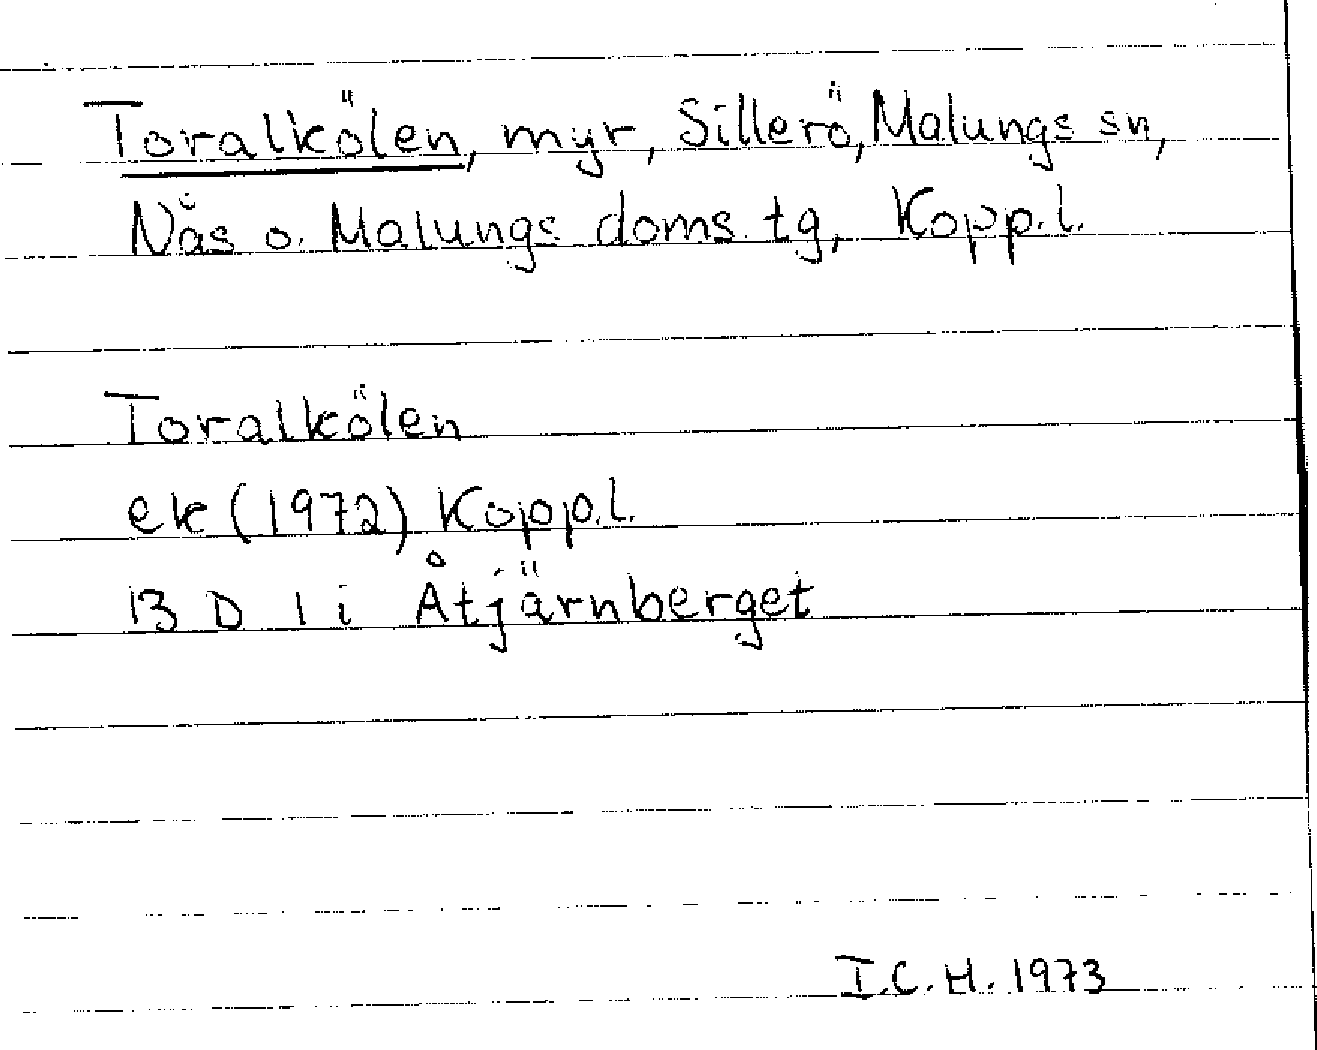 Toralkölen, myr, Sillerö, Malungs sn,
Nås o. Malungs doms. tg, Kopp.l.
Toralkölen
ek (1972) Kopp.l.
13 D 1 i Åtjärnberget
I.C.H. 1973